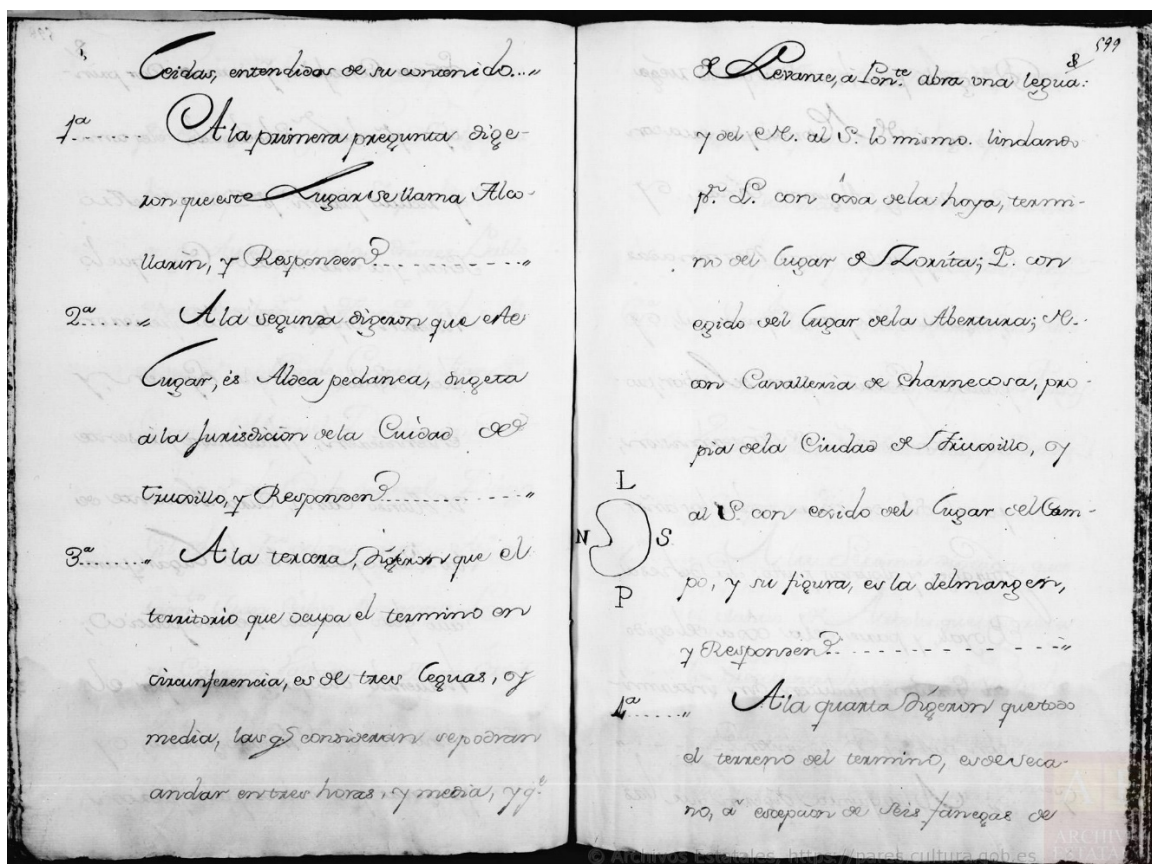 Leidas, entendidas de su contenido...„
1ª A la primera pregunta dige-
ron que este Lugar se llama Alco-
llarin, y Responden
2ª „ A la segunda digeron que este
Lugar, és Aldea pedanea, sugeta
a la Jurisdicion dela Cuidad de
truxillo, y Responden „
3ª „ A la tercera, digeron que el
territorio que ocupa el termino en
circunferencia, es de tres leguas, y
media, las qs consideran sepodran
andar en tres horas, y media, y qe
599
8
de Levante, a Ponte abra vna legua:
y del N. al S. lo mismo. lindando
pr. L. con de la hoya, termi-
no del Lugar de Zorita; P. con
egido del Lugar dela Abertura; N.
con Cavalleria de Charnecosa, pro-
pia dela Ciudad de Truxillo, y
al S. con exido del Lugar del Cam-
po, y su figura, es la delmargen,
y Responden „
L
N S
P
4ª „ A la quarta digeron que todo
el terreno del termino, es de seca-
no, aª escepcion de seis fanegas de
© Archivos Estatales, https://pares.cultura.gob.es
ARCHIVOS
ESTATALES